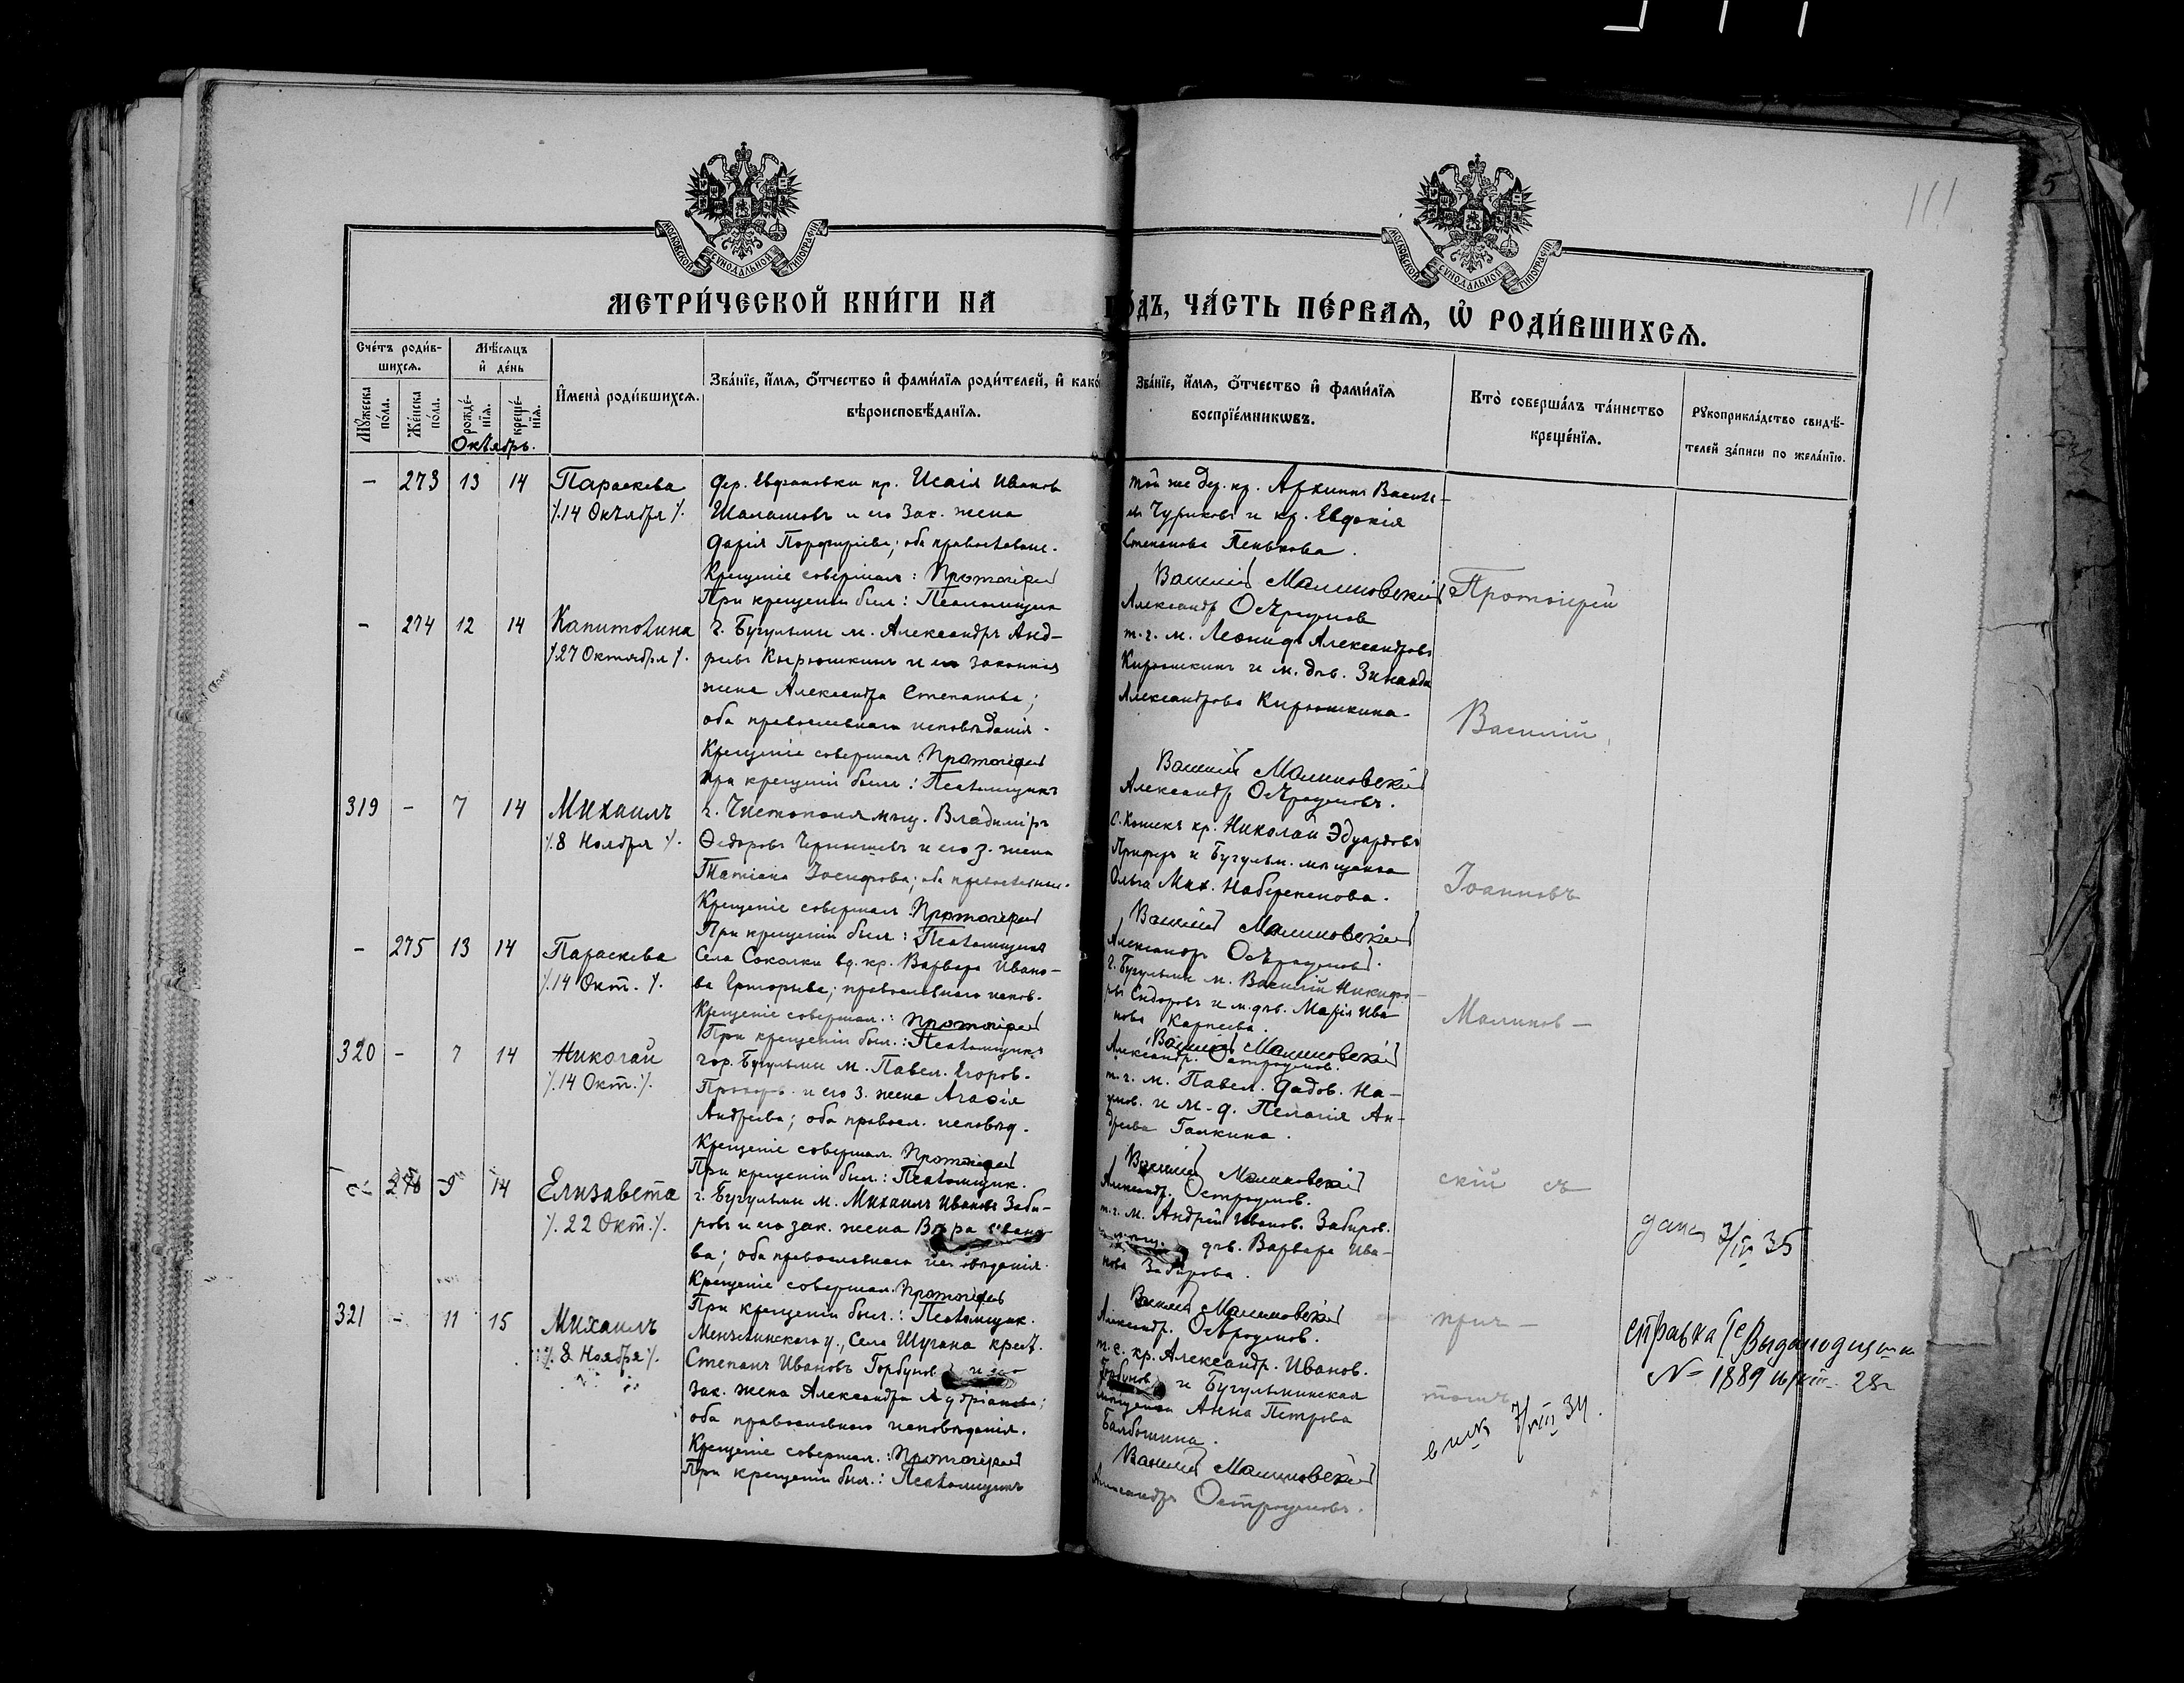 111
5
МОСКОВСКОЙ СѴНОДАЛЬНОЙ ТИПОГРАФІИ
МОСКОВСКОЙ СѴНОДАЛЬНОЙ ТИПОГРАФІИ
МЕТРИ́ЧЕСКОЙ КНИ́ГИ НА
ГО́ДЪ, ЧА́СТЬ ПЕ́РВАѦ, Ѡ҆ РОДИ́ВШИХСѦ.
Сче́тъ роди́в-
шихсѧ.
Мѣ́сѧцъ
и҆ де́нь
Мꙋ́жеска
по́ла.
Же́нска
по́ла.
рожде́-
нїѧ.
креще́-
нїѧ.
И҆мена̀ роди́вшихсѧ.
Зва́нїе, и҆́мѧ, ѻ҆́тчество и҆ фами́лїѧ роди́телей, и҆ како́
вѣроисповѣ́данїѧ.
Зва́нїе, и҆́мѧ, ѻ҆́тчество и҆ фами́лїѧ
воспрїе́мникѡвъ.
Кто̀ соверша́лъ та́инство
креще́нїѧ.
Рꙋкоприкла́дство свидѣ́-
телей за́писи по жела́нїю.
Октябрь.
- 273 13 14 Параскева
/.14 Октября /.
дер. кр. Исаія Иванов
Шалашовъ и его зак. жена
Дарія Порфиріева; оба православн.
Крещеніе совершал: Протоіерей
При крещеніи был: Псаломщик
той же дер. кр. Архипп Василь-
ев Чуриковъ и кр. Евдокія
Степанова Пенькова.
Василій Малиновскій
Александр Остроумов
Протоіерей
- 274 12 14 Капитолина
/.27 Октября /.
г. Бугульмы м. Александръ Анд-
реевъ Кирюшкинъ и его законная
жена Александра Степанова;
оба православнаго исповѣданія.
Крещеніе совершал: Протоіерей
При крещеніи былъ: Псаломщикъ
т. г. м. Леонидъ Александровъ
Кирюшкинъ и м. дѣв. Зинаида
Александрова Кирюшкина.
Василій Малиновскій
Александр Остроумовъ.
Василій
319 - 7 14 Михаилъ
/.8 Ноября /.
г. Чистополя мѣщ. Владиміръ
Ѳедоровъ Чернышевъ и его з. жена
Татіана Іосифова; оба православные.
Крещеніе совершал: Протоіерей
При крещеніи был: Псаломщикъ
кр. Николай Эдуардовъ
и Бугульм. мѣщанка
Ольга Мих.
Василій Малиновскій
Александръ Остроумовъ.
Іоанновъ
- 275 13 14 Параскева
/.14 Окт. /.
Села Соколки вд. кр. Варвара Ивано-
ва Григорьева; православнаго испов.
Крещеніе совершал.: Протоіерей
При крещеніи был.: Псаломщикъ
г. Бугульмы м. Василій Никифо-
ровъ Сидоровъ и м. дѣв. Марія Ива-
нова Карпеева.
Василій Малиновскій
Александр. Остроумов.
Малинов-
320 - 7 14 Николай
/.14 Окт./.
гор. Бугульмы м. Павел. Егоров.
Прохоръ. и его з. жена Агаѳія
Андреева; оба правосл. исповѣд.
Крещеніе совершал. Протоіерей
При крещеніи был.: Псаломщик.
т. г. м. Павел.
и м. д. Пелагія Ан-
дреева Галкина.
Василій Малиновскій
Александр. Остроумов.
скій съ
- 276 9 14 Елизавета
/.22 Окт./.
г. Бугульмы м. Михаилъ Ивановъ Заби-
ровъ и его зак. жена Вѣра Ивано-
ва; оба православнаго исповѣданія.
Крещеніе совершал. Протоіерей
При крещеніи был.: Псаломщик.
т. г. м. Андрей Иванов. Забиров.
дѣв. Варвара Ива-
нова Забирова.
Василій Малиновскій
Александр. Остроумов.
прич-
321 - 11 15 Михаилъ
/.8 Ноября /.
Мензелинскаго у., села Шугана крест.
Степанъ Ивановъ Горбунов и его
зак. жена Александра Андріанова;
оба православнаго исповѣданія.
Крещеніе совершал.: Протоіерей
При крещеніи был.: Псаломщикъ
т. с. кр. Александр. Иванов.
Горбунов и Бугульминская
мѣщанка Анна Петрова
Василій Малиновскій
Александръ Остроумовъ.
томъ
7/VIII 34.
35
справка
N- 1889